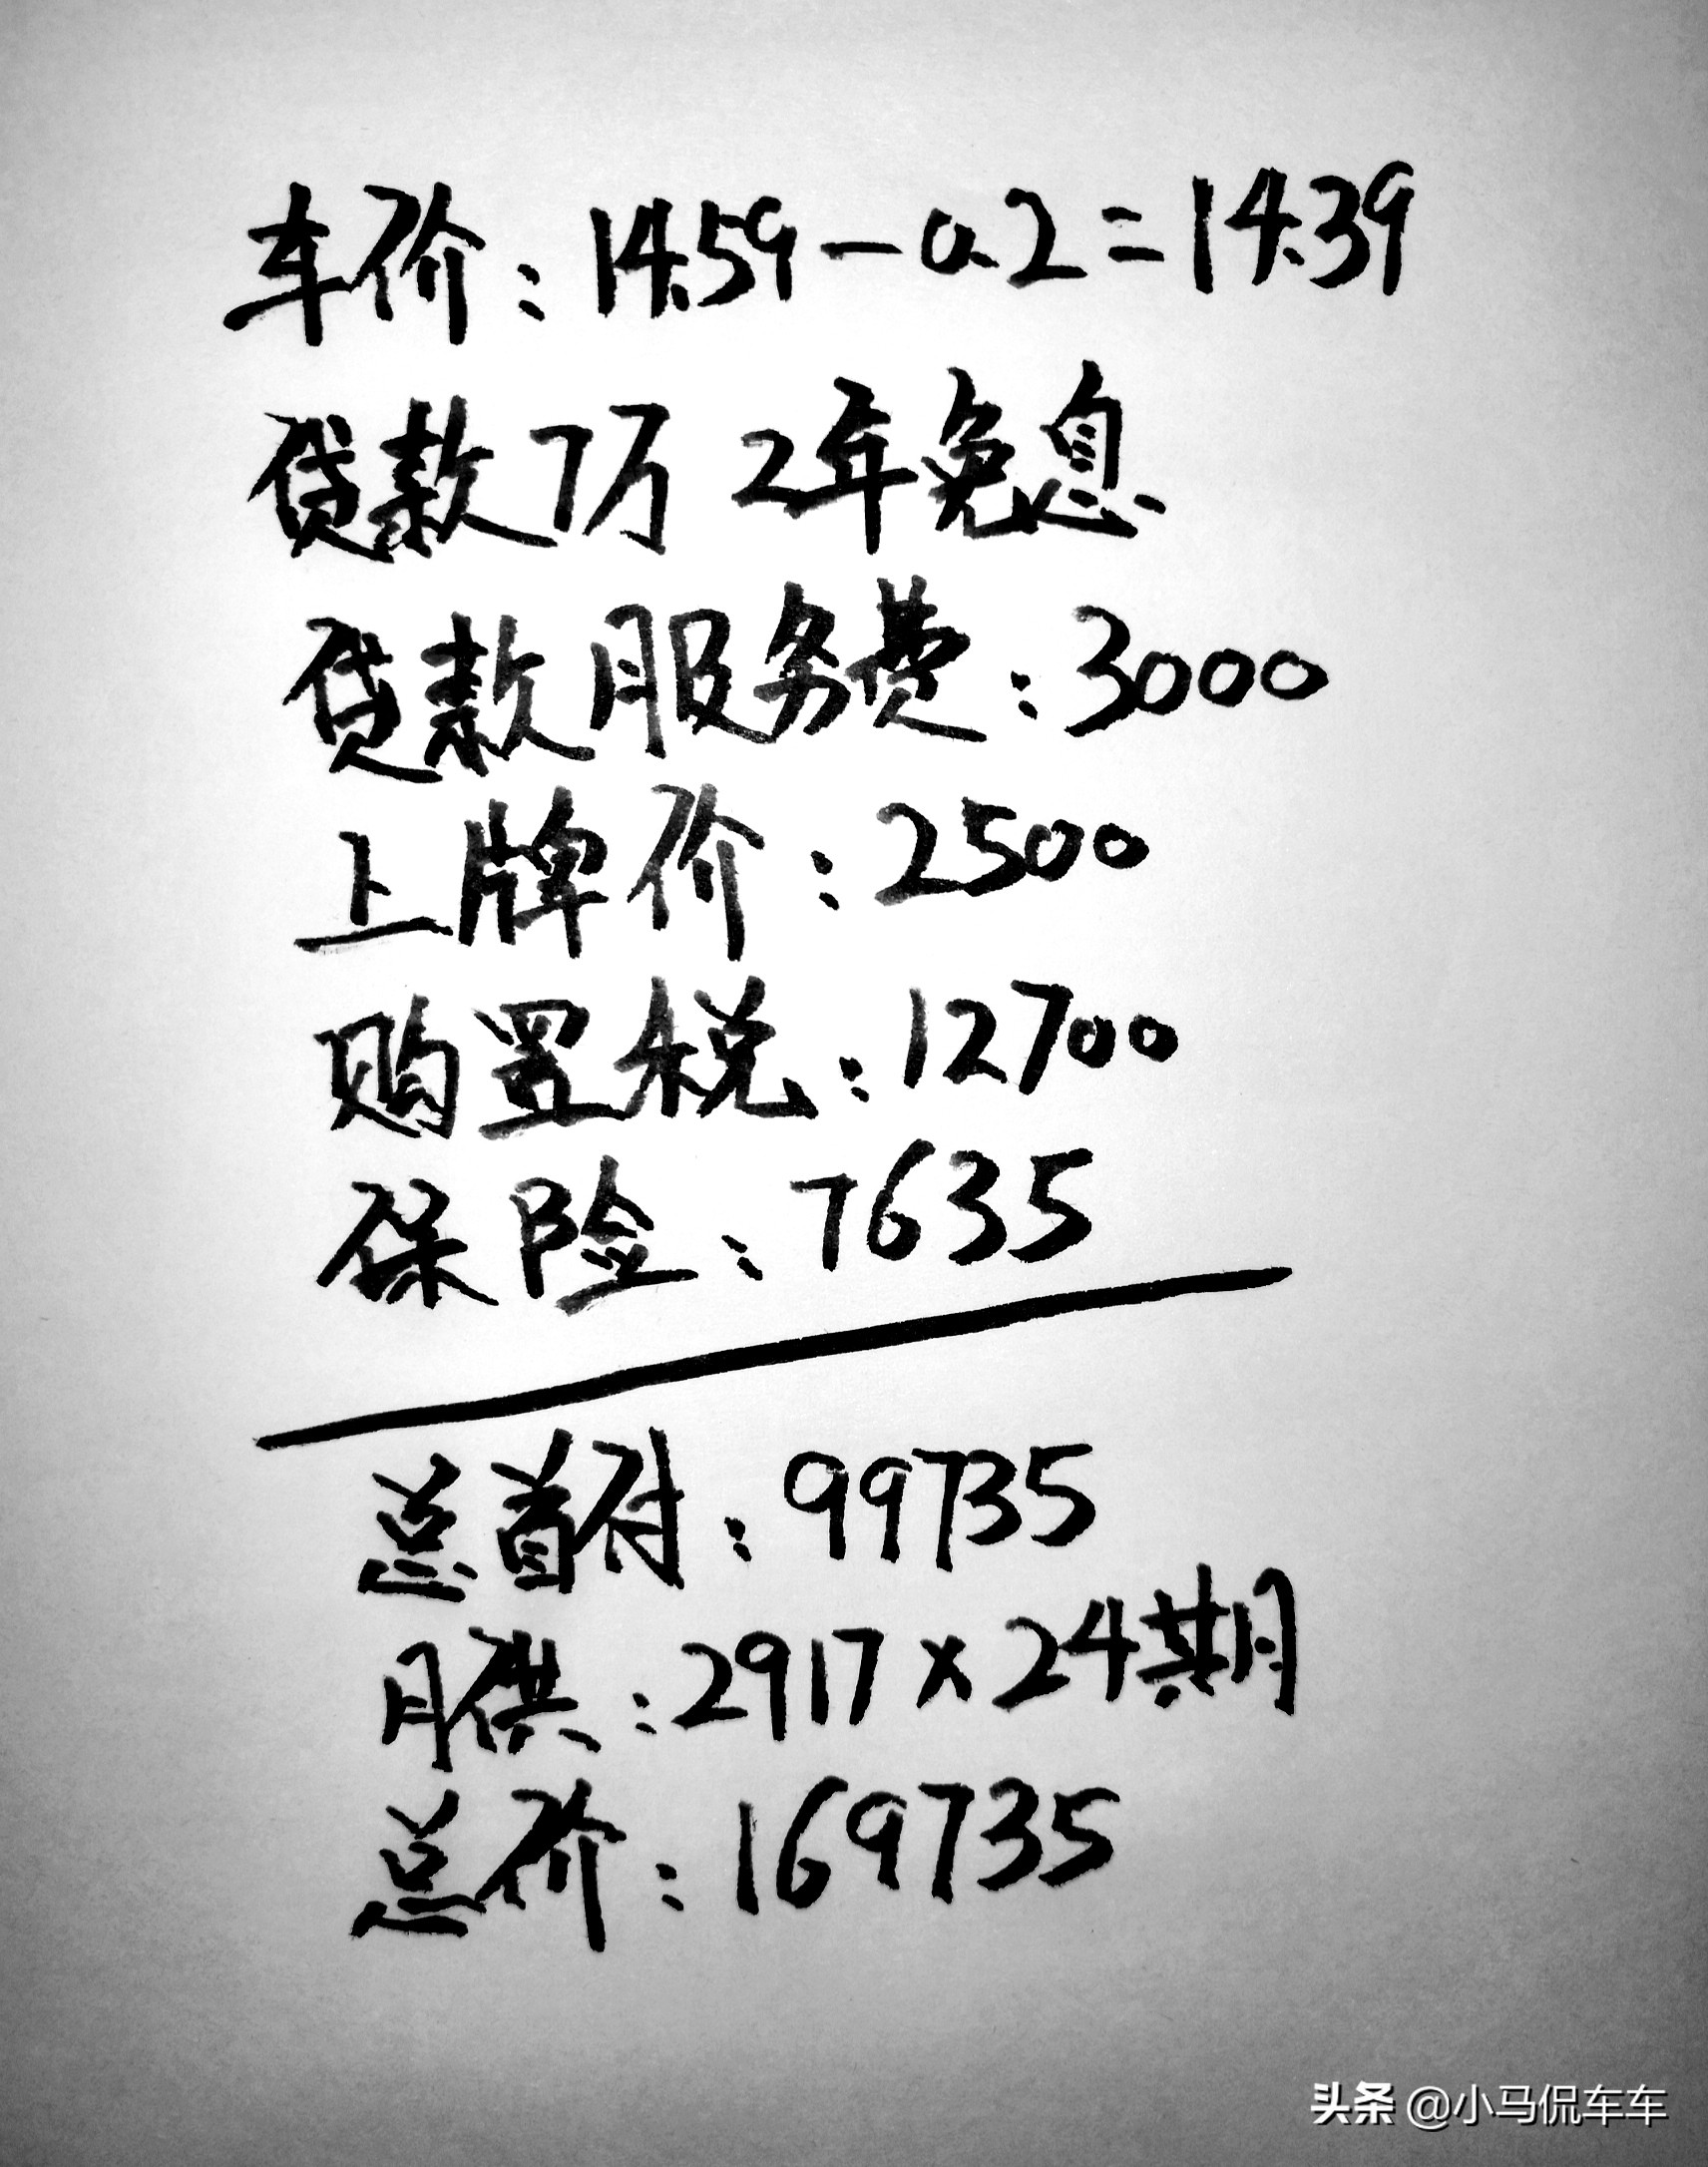 车价：14.59－0.2＝14.39
贷款7万 2年免息
贷款服务费：3000
上牌价：2500
购置税：12700
保险：7635
总首付：99735
月供：2917×24期
总价：169735
头条 @小马侃车车